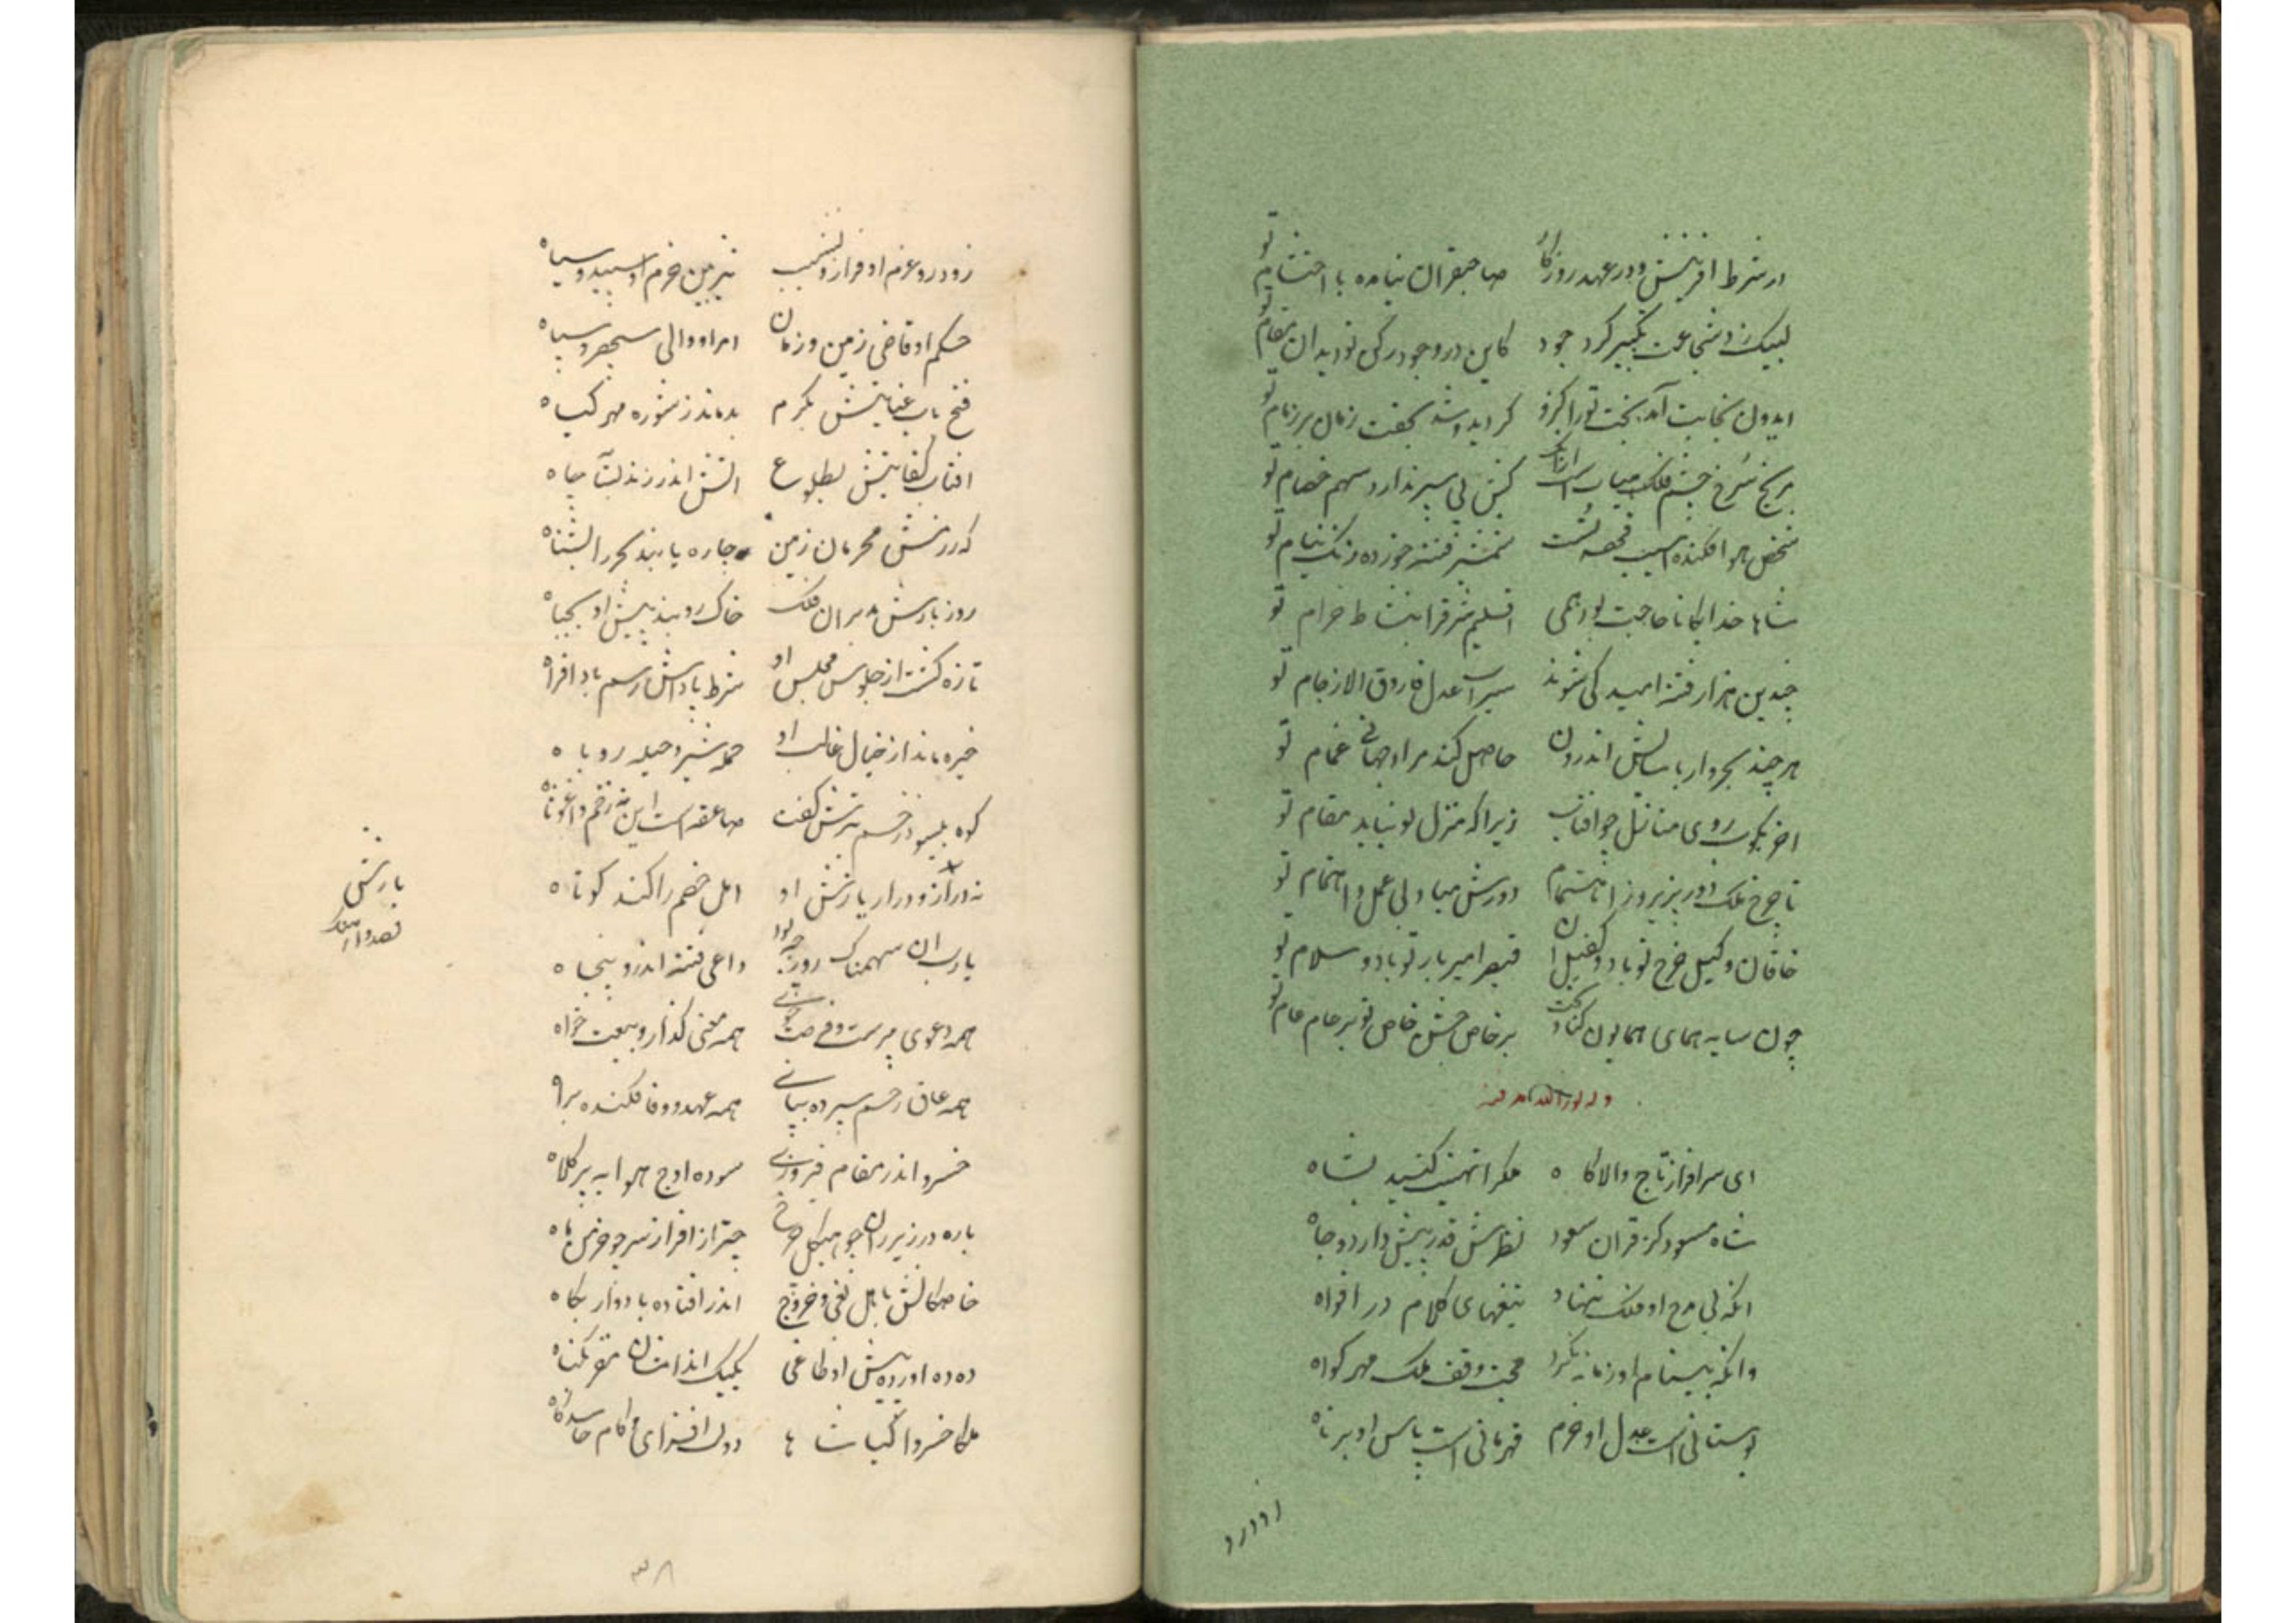 در شرط افرینش و در عهد روزگار صاحبقران نیامده با احتشام تو
لبیک زد شجاعت تکبیر کرد جود کاین در وجود رکن تو دید ان مقام تو
ایدون نجابت آمد بخت تورا کزو گردید و شد بجفت زمان بر زمام تو
مریخ سرخ چشم فلک سپر ندارد سهم تو
شخص هوا فکنده شمشیر فتنه خورده ز نیام تو
شاها خدایگانا حاجت بود همی خرام تو
چندین هزار فتنه امید کی شوند سیراب عدل فاروق الا ز جام تو
هر چند بحر وار با سایل اندرون حاصل کند مراد جهانی غمام تو
اخر بکوب روی منازل چو افتاب زیرا که منزل تو نباید مقام تو
تا چرخ ملک دور پذیرد ز اهتمام دورش مباد بی عمل و اهتمام تو
خاقان وکیل خرج تو باد و کفیل ان قیصر امیر بار تو باد و سلام تو
چون سایه همای همایون کناد بر خاص جشن خاص تو بر عام عام تو
وله نور الله مرقده
ای سرافراز تاج والا گاه ملک را تهنیت کنید بشاه
شاه مسعود کز قران سعود نظرش قدر بیش دارد و جاه
انکه بی مدح او فلک ننهاد تیغهای کلام در افواه
وانکه بی نام او زمانه نکرد حجت وقف ملک مهر گواه
بوستانی است عدل او خرم قهرمانی است باس او برناه
زود رو
زود رو عزم او فراز و نشیب تیز بین حزم او سپید و سیاه
حکم او قاضی زمین و زمان امر او والی سپهر و سپاه
فتح باب عنایتش بکرم بدماند ز شوره مهر گیاه
افتاب کفایتش بطلوع اتش اندر زند باب چاه
گه رزمش محرمان زمین چاره یابند بحر را بشناه
روز بارش مدبران فلک خاک روبند پیش او بجباه
تازه گشت از جلوس مجلس او شرط پاداش و رسم باد افراه
خیره ماند از خیال غالب او حمله شیر و حیله روباه
کوه پلیسود زخم تیرش گفت صاعقه است این نه زخم واغوثاه
نه دراز و دراز یازش او امل خصم را کند کوتاه
یارب ان سهمناک روز چه بود داعی فتنه اندرو پنجاه
یازش
قصد و اهنگ
همه دعوی پرست و فرصت جوی همه معنی گذار و بیعت خواه
همه عاق رحم سپرده بپای همه عهد و وفا فکنده براه
خسرو اندر مقام فیروزی سوده اوج هوا به پر کلاه
باره در زیر ران چو هیکل چرخ چتر از افراز سر چو خرمن ماه
خاصگانش باهل بغی و خروج اندر افتاده باد وار بکاه
ده ده اورده پیش او طاغی یکبیک اندامشان مقر بگناه
ملکا خسروا کیا شاها دولت افزای کام حاسد کاه
۳۸